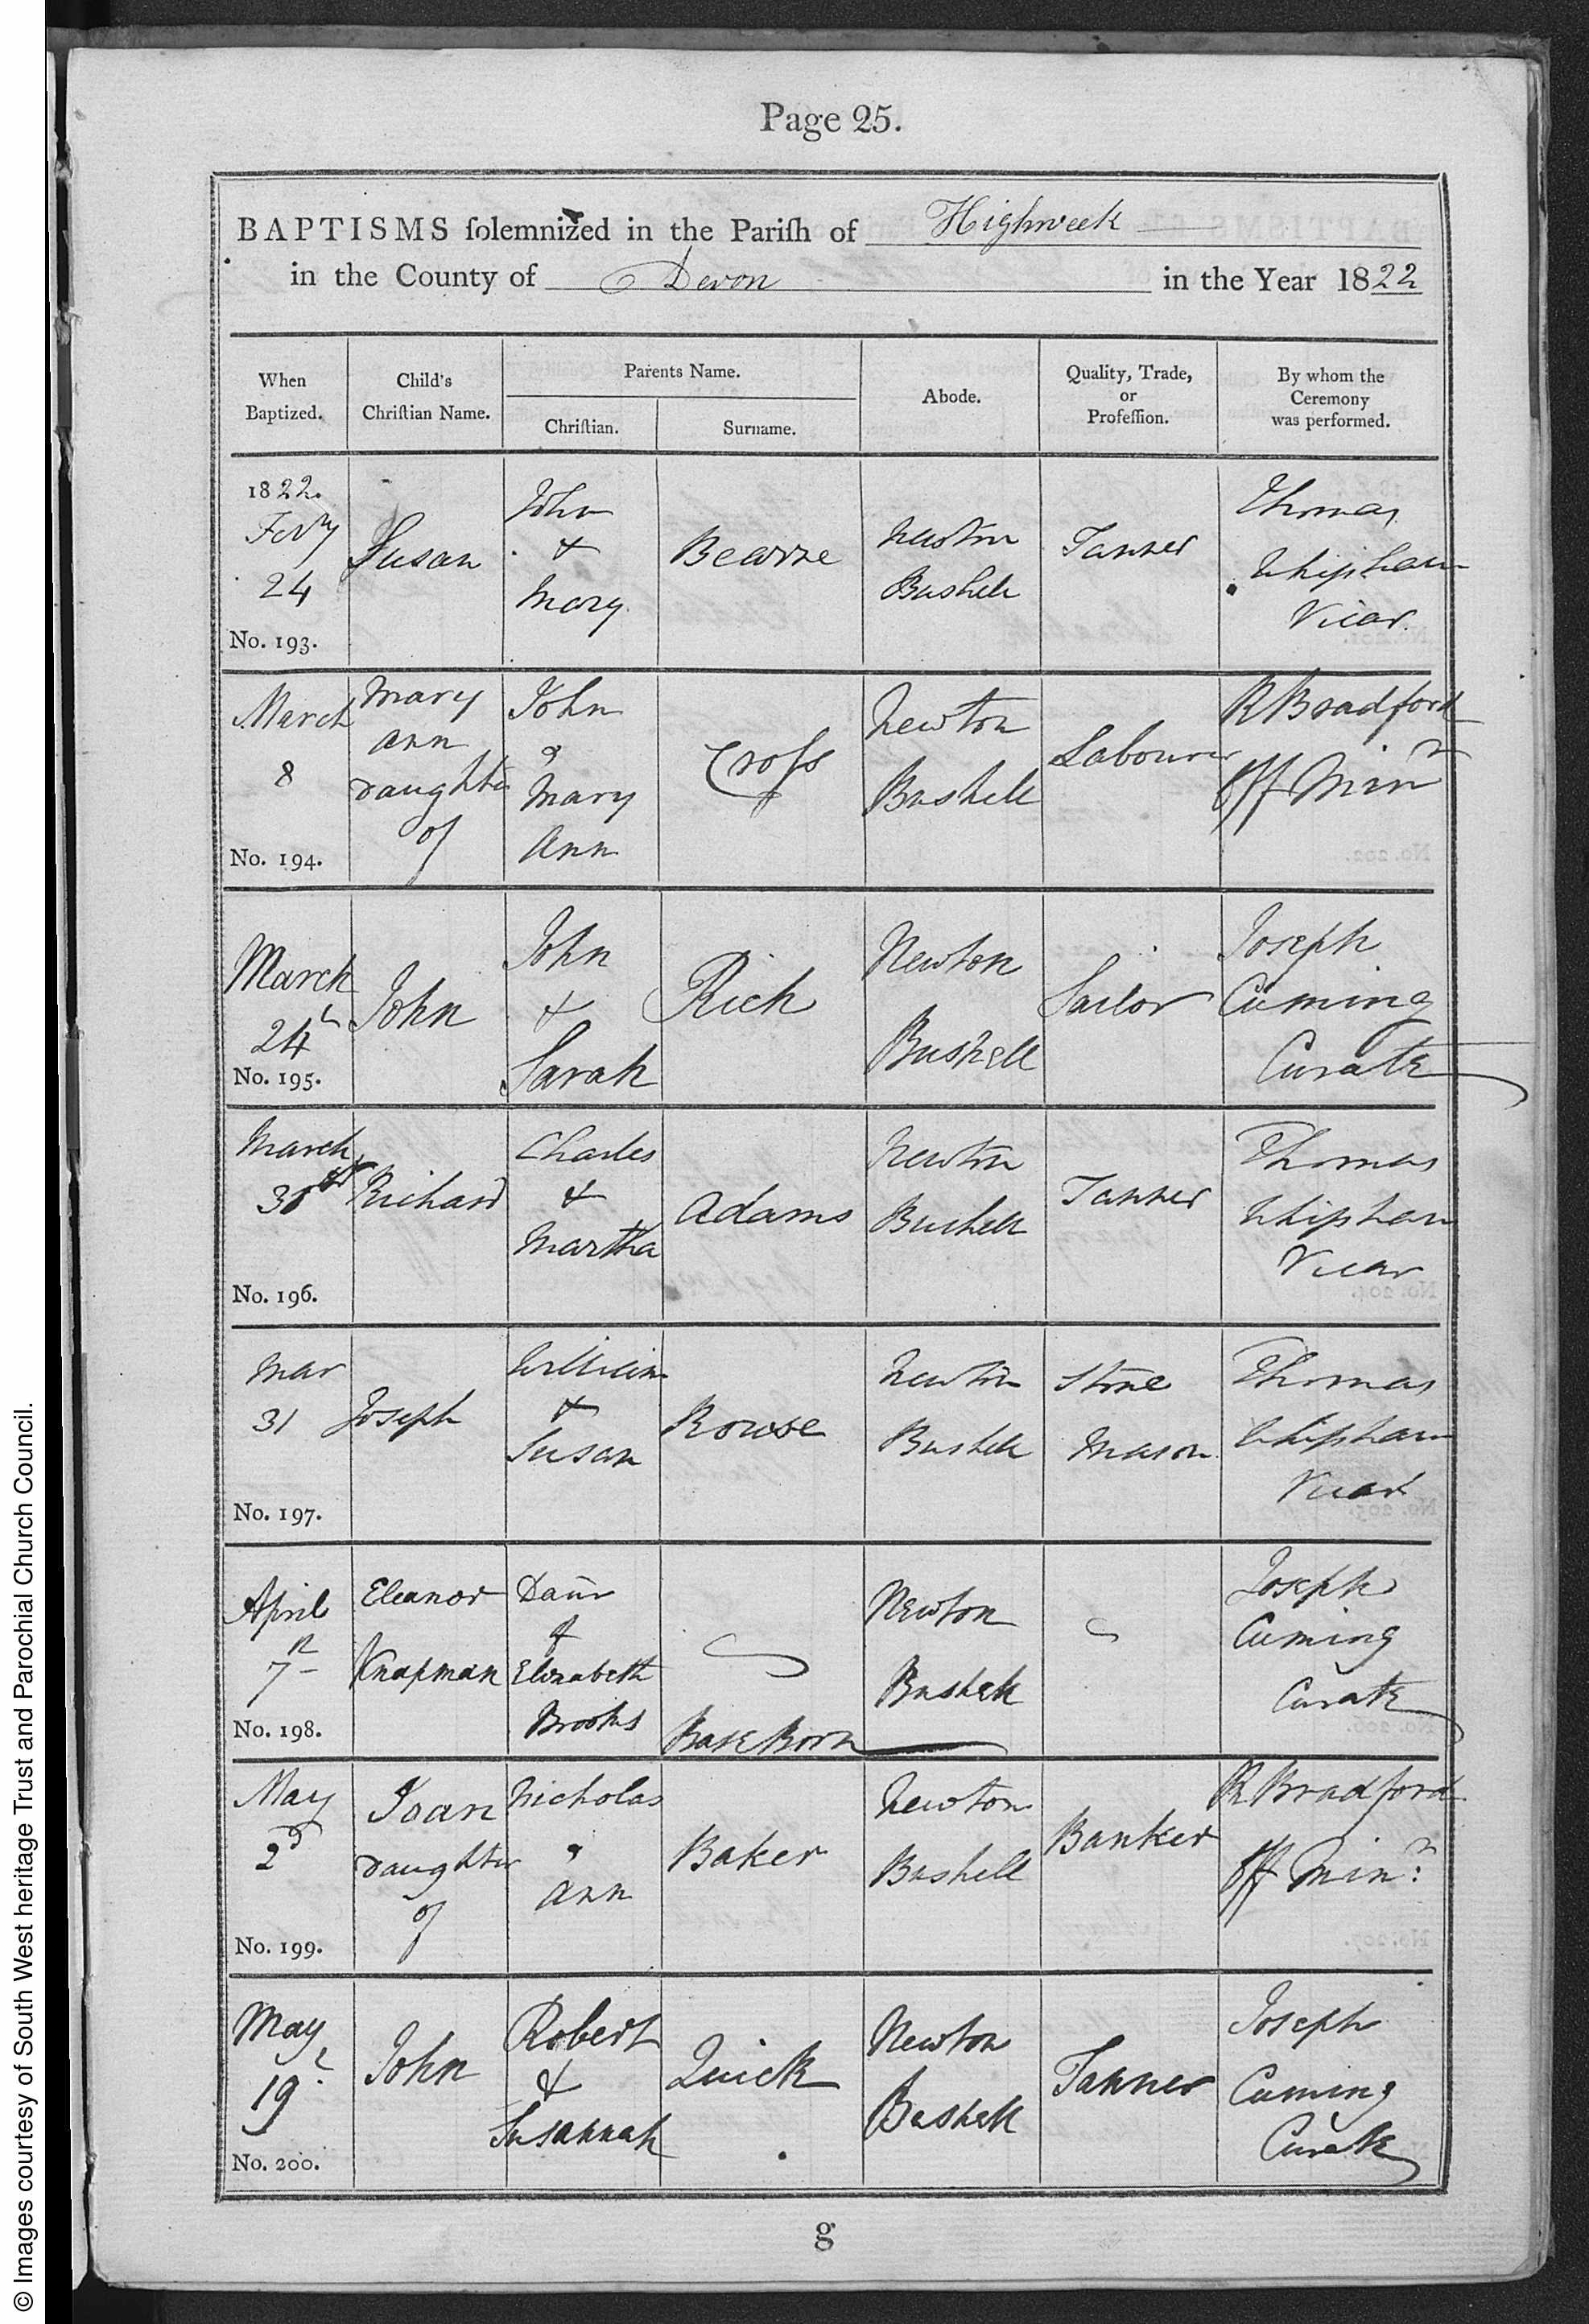 Page 25.
BAPTISMS solemnized in the Parish of Highweek
in the County of Devon in the Year 1822
When Baptized.
Child's Christian Name.
Parents Name.
Christian.
Surname.
Abode.
Quality, Trade, or Profession.
By whom the Ceremony was performed.
1822.
Febry
24
No. 193.
Susan
John
&
Mary
Bearne
Newton
Bushell
Tanner
Thomas
Whipham
Vicar.
March
8
No. 194.
Mary
Ann
Daughter
of
John
&
Mary
Ann
Cross
Newton
Bushell
Labourer
R Bradford
Off Minr
March
24
No. 195.
John
John
&
Sarah
Rich
Newton
Bushell
Sailor
Joseph
Cuming
Curate
March
31
No. 196.
Richard
Charles
&
Martha
Adams
Newton
Bushell
Tanner
Thomas
Whipham
Vicar
Mar
31
No. 197.
Joseph
William
&
Susan
Rowse
Newton
Bushell
Stone
Mason
Thomas
Whipham
Vicar
April
7th
No. 198.
Eleanor
Knapman
Daur
of
Elizabeth
Brooks
Base Born
Newton
Bushell
Joseph
Cuming
Curate
May
2d
No. 199.
Joan
Daughter
of
Nicholas
&
Ann
Baker
Newton
Bushell
Banker
R Bradford
Off Minr
May
19
No. 200.
John
Robert
&
Susannah
Quick
Newton
Bushell
Tanner
Joseph
Cuming
Curate
g
© Images courtesy of South West heritage Trust and Parochial Church Council.